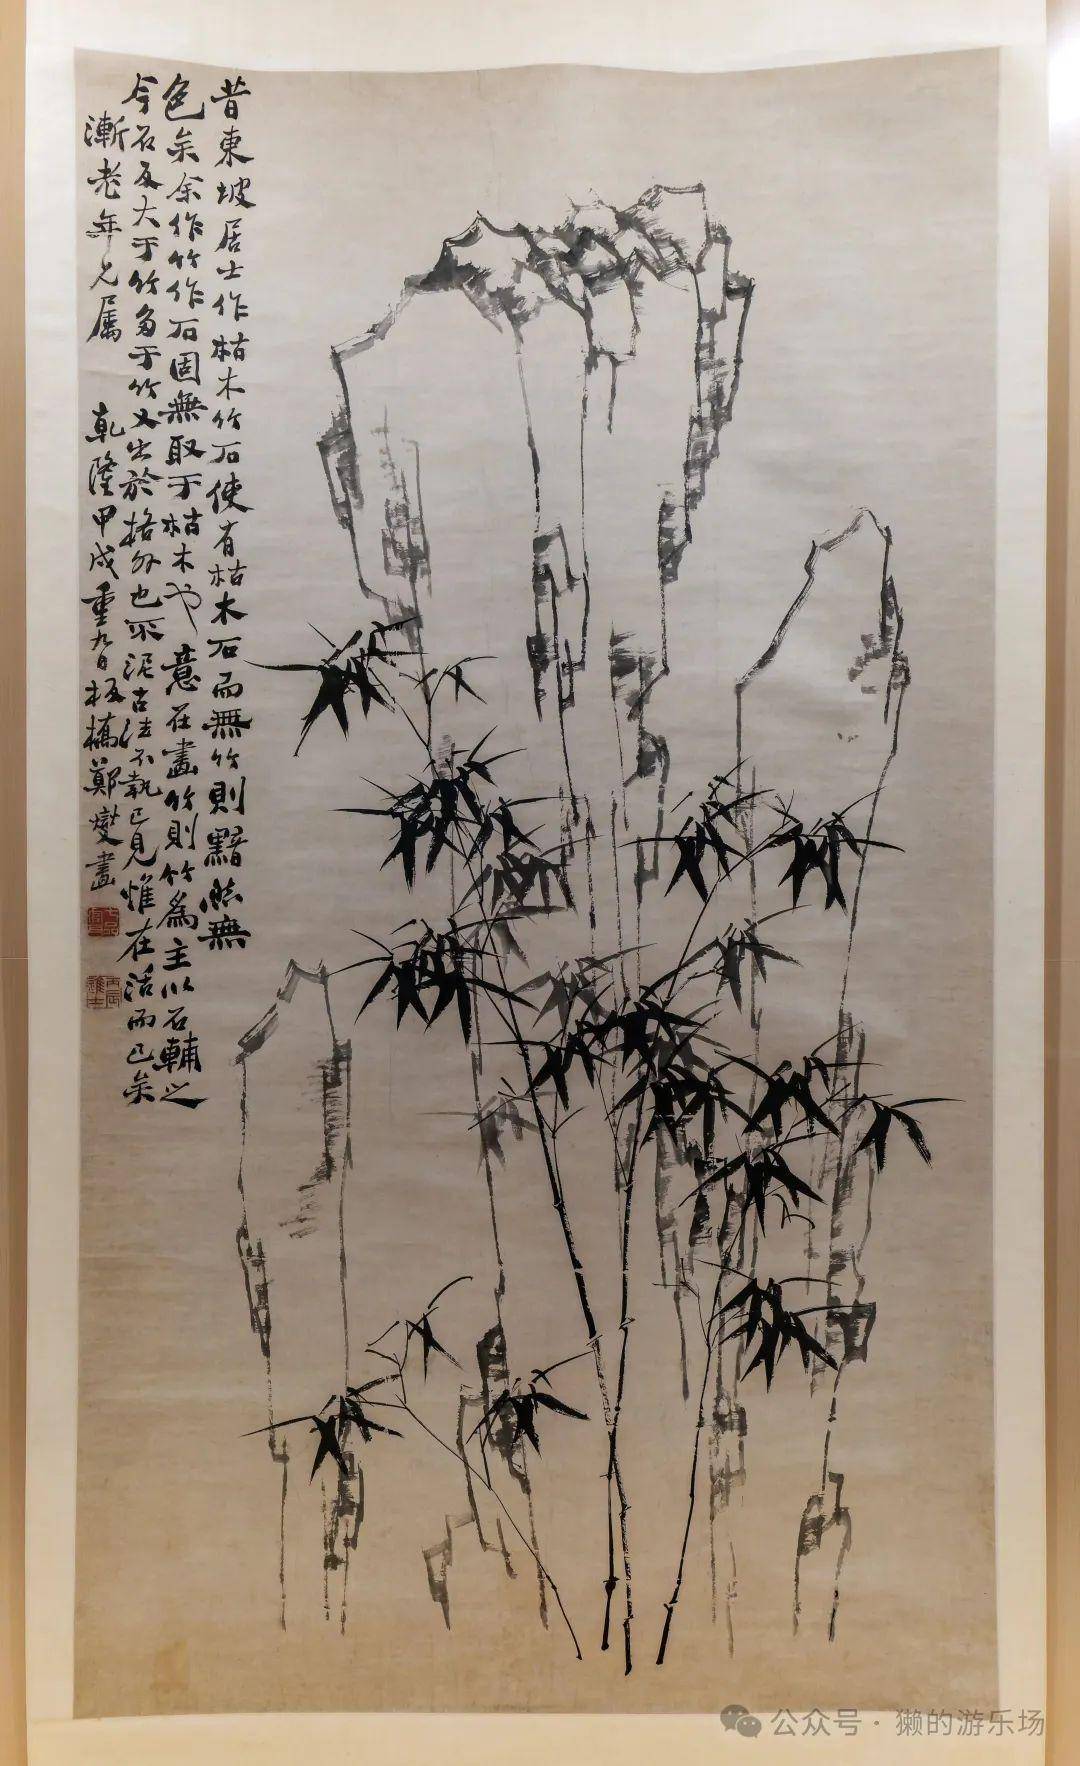 昔東坡居士作枯木竹石使有枯木石而無竹則黯然無
色矣余作竹作石固無取于枯木也意在畫竹則竹爲主以石輔之
今石反大于竹多于竹又出於格外也不泥古法不執己見惟在活而已矣
漸老年兄属
乾隆甲戌重九日板橋鄭燮畫
公众号·獭的游乐场